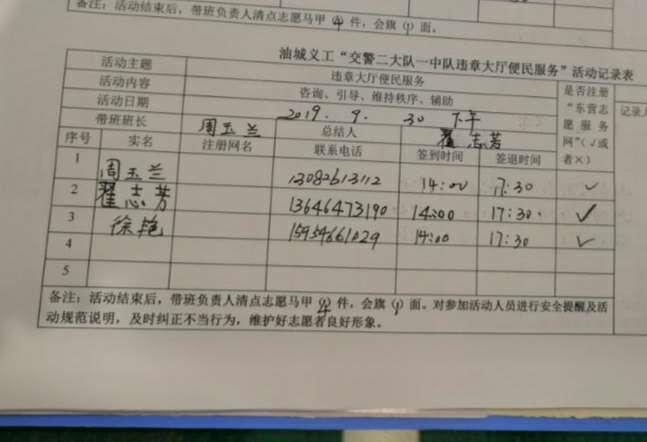 备注：活动结束后，带班负责人清点志愿马甲 4 件，会旗（1）面。
油城义工“交警二大队一中队违章大厅便民服务”活动记录表
活动主题 违章大厅便民服务
活动内容 咨询、引导、维持秩序、辅助
活动日期 2019. 9. 30 下午
带班班长 周玉兰 总结人 翟志芳
是否注册“东营志愿服务网”（√或者×）
序号 实名 注册网名 联系电话 签到时间 签退时间
1 周玉兰 13082613112 14:00 17:30 √
2 翟志芳 13646473190 14:00 17:30. √
3 徐艳 15954661029 14:00 17:30 √
4
5
备注：活动结束后，带班负责人清点志愿马甲 4 件，会旗（1）面。对参加活动人员进行安全提醒及活
动规范说明，及时纠正不当行为，维护好志愿者良好形象。